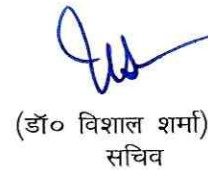 (डॉ० विशाल शर्मा)
सचिव